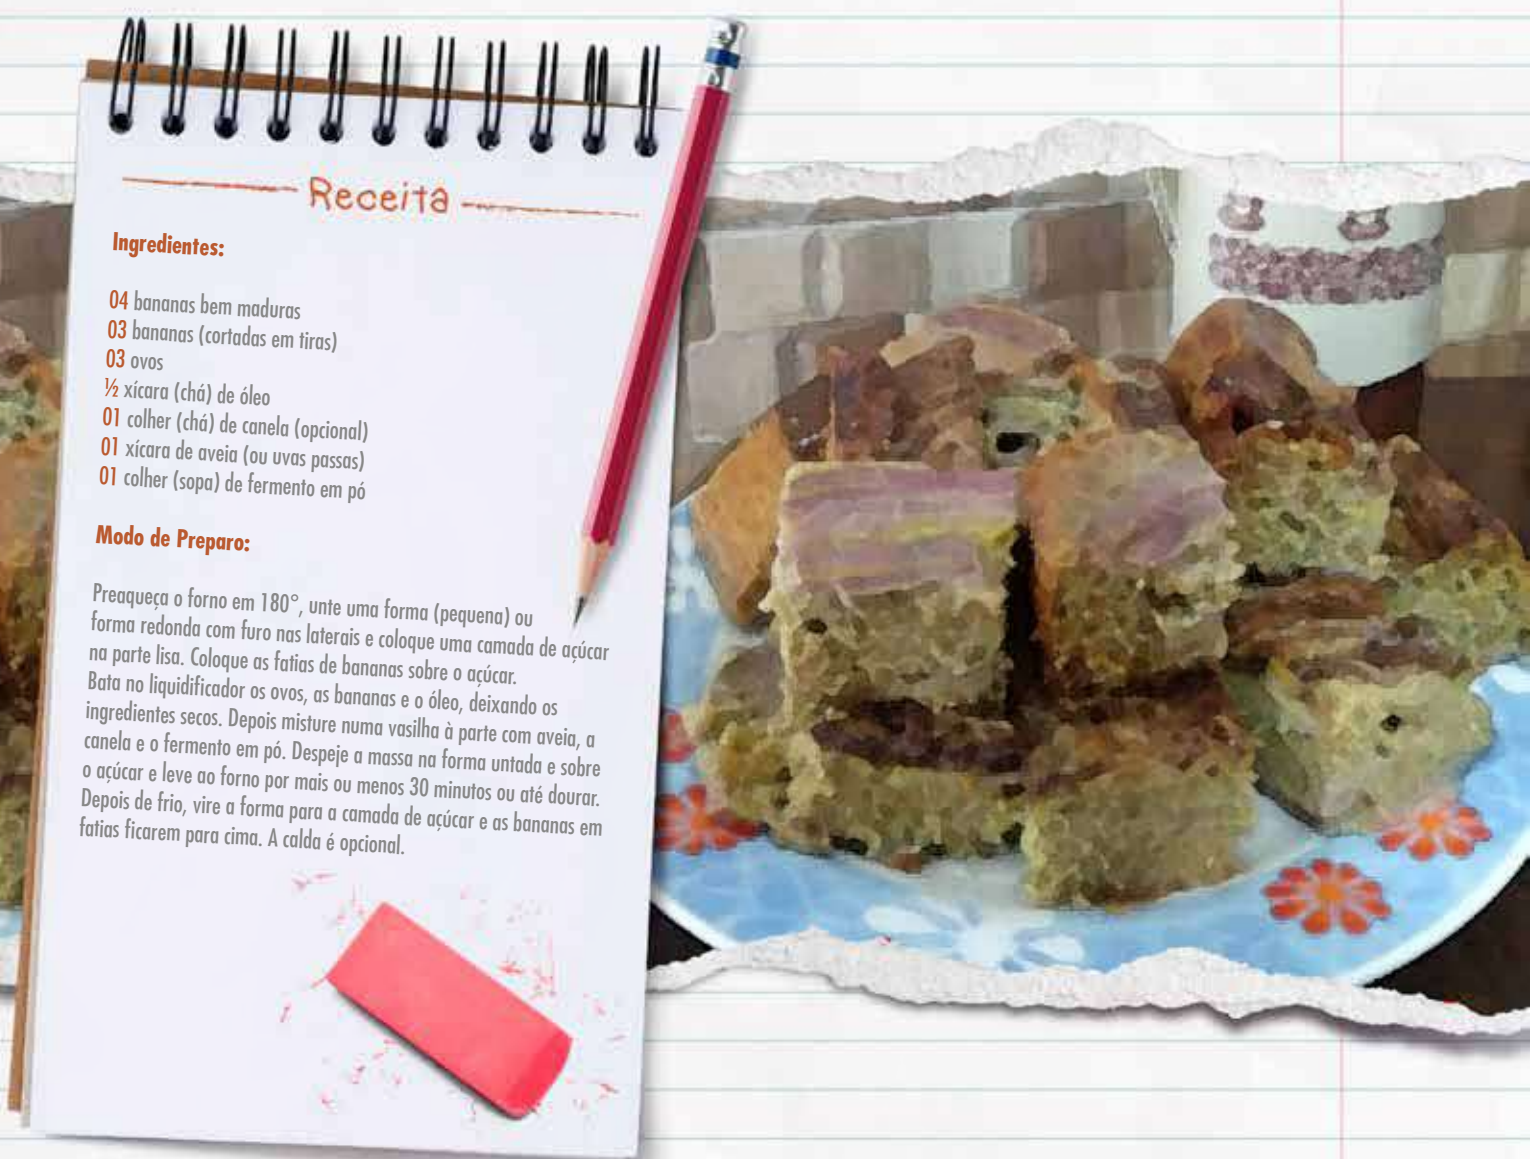 Receita
Ingredientes:
04 bananas bem maduras
03 bananas (cortadas em tiras)
03 ovos
½ xícara (chá) de óleo
01 colher (chá) de canela (opcional)
01 xícara de aveia (ou uvas passas)
01 colher (sopa) de fermento em pó
Modo de Preparo:
Preaqueça o forno em 180°, unte uma forma (pequena) ou
forma redonda com furo nas laterais e coloque uma camada de açúcar
na parte lisa. Coloque as fatias de bananas sobre o açúcar.
Bata no liquidificador os ovos, as bananas e o óleo, deixando os
ingredientes secos. Depois misture numa vasilha à parte com aveia, a
canela e o fermento em pó. Despeje a massa na forma untada e sobre
o açúcar e leve ao forno por mais ou menos 30 minutos ou até dourar.
Depois de frio, vire a forma para a camada de açúcar e as bananas em
fatias ficarem para cima. A calda é opcional.